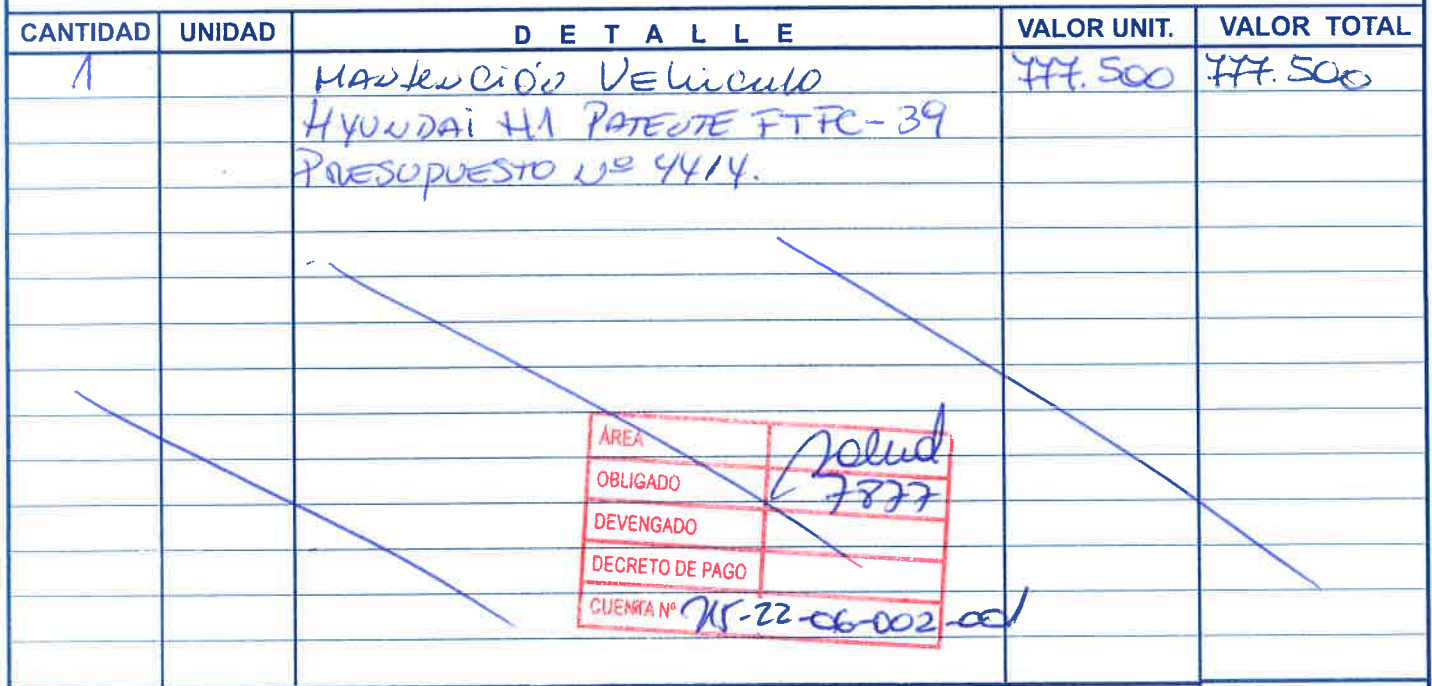 CANTIDAD UNIDAD DETALLE VALOR UNIT. VALOR TOTAL
1 Mantención Vehiculo 777.500 777.500
HYUNDAI H1 PATENTE FTFC-39
PRESUPUESTO Nº 4414.
ÁREA Salud
OBLIGADO 7877
DEVENGADO
DECRETO DE PAGO
CUENTA Nº 215-22-06-002-001